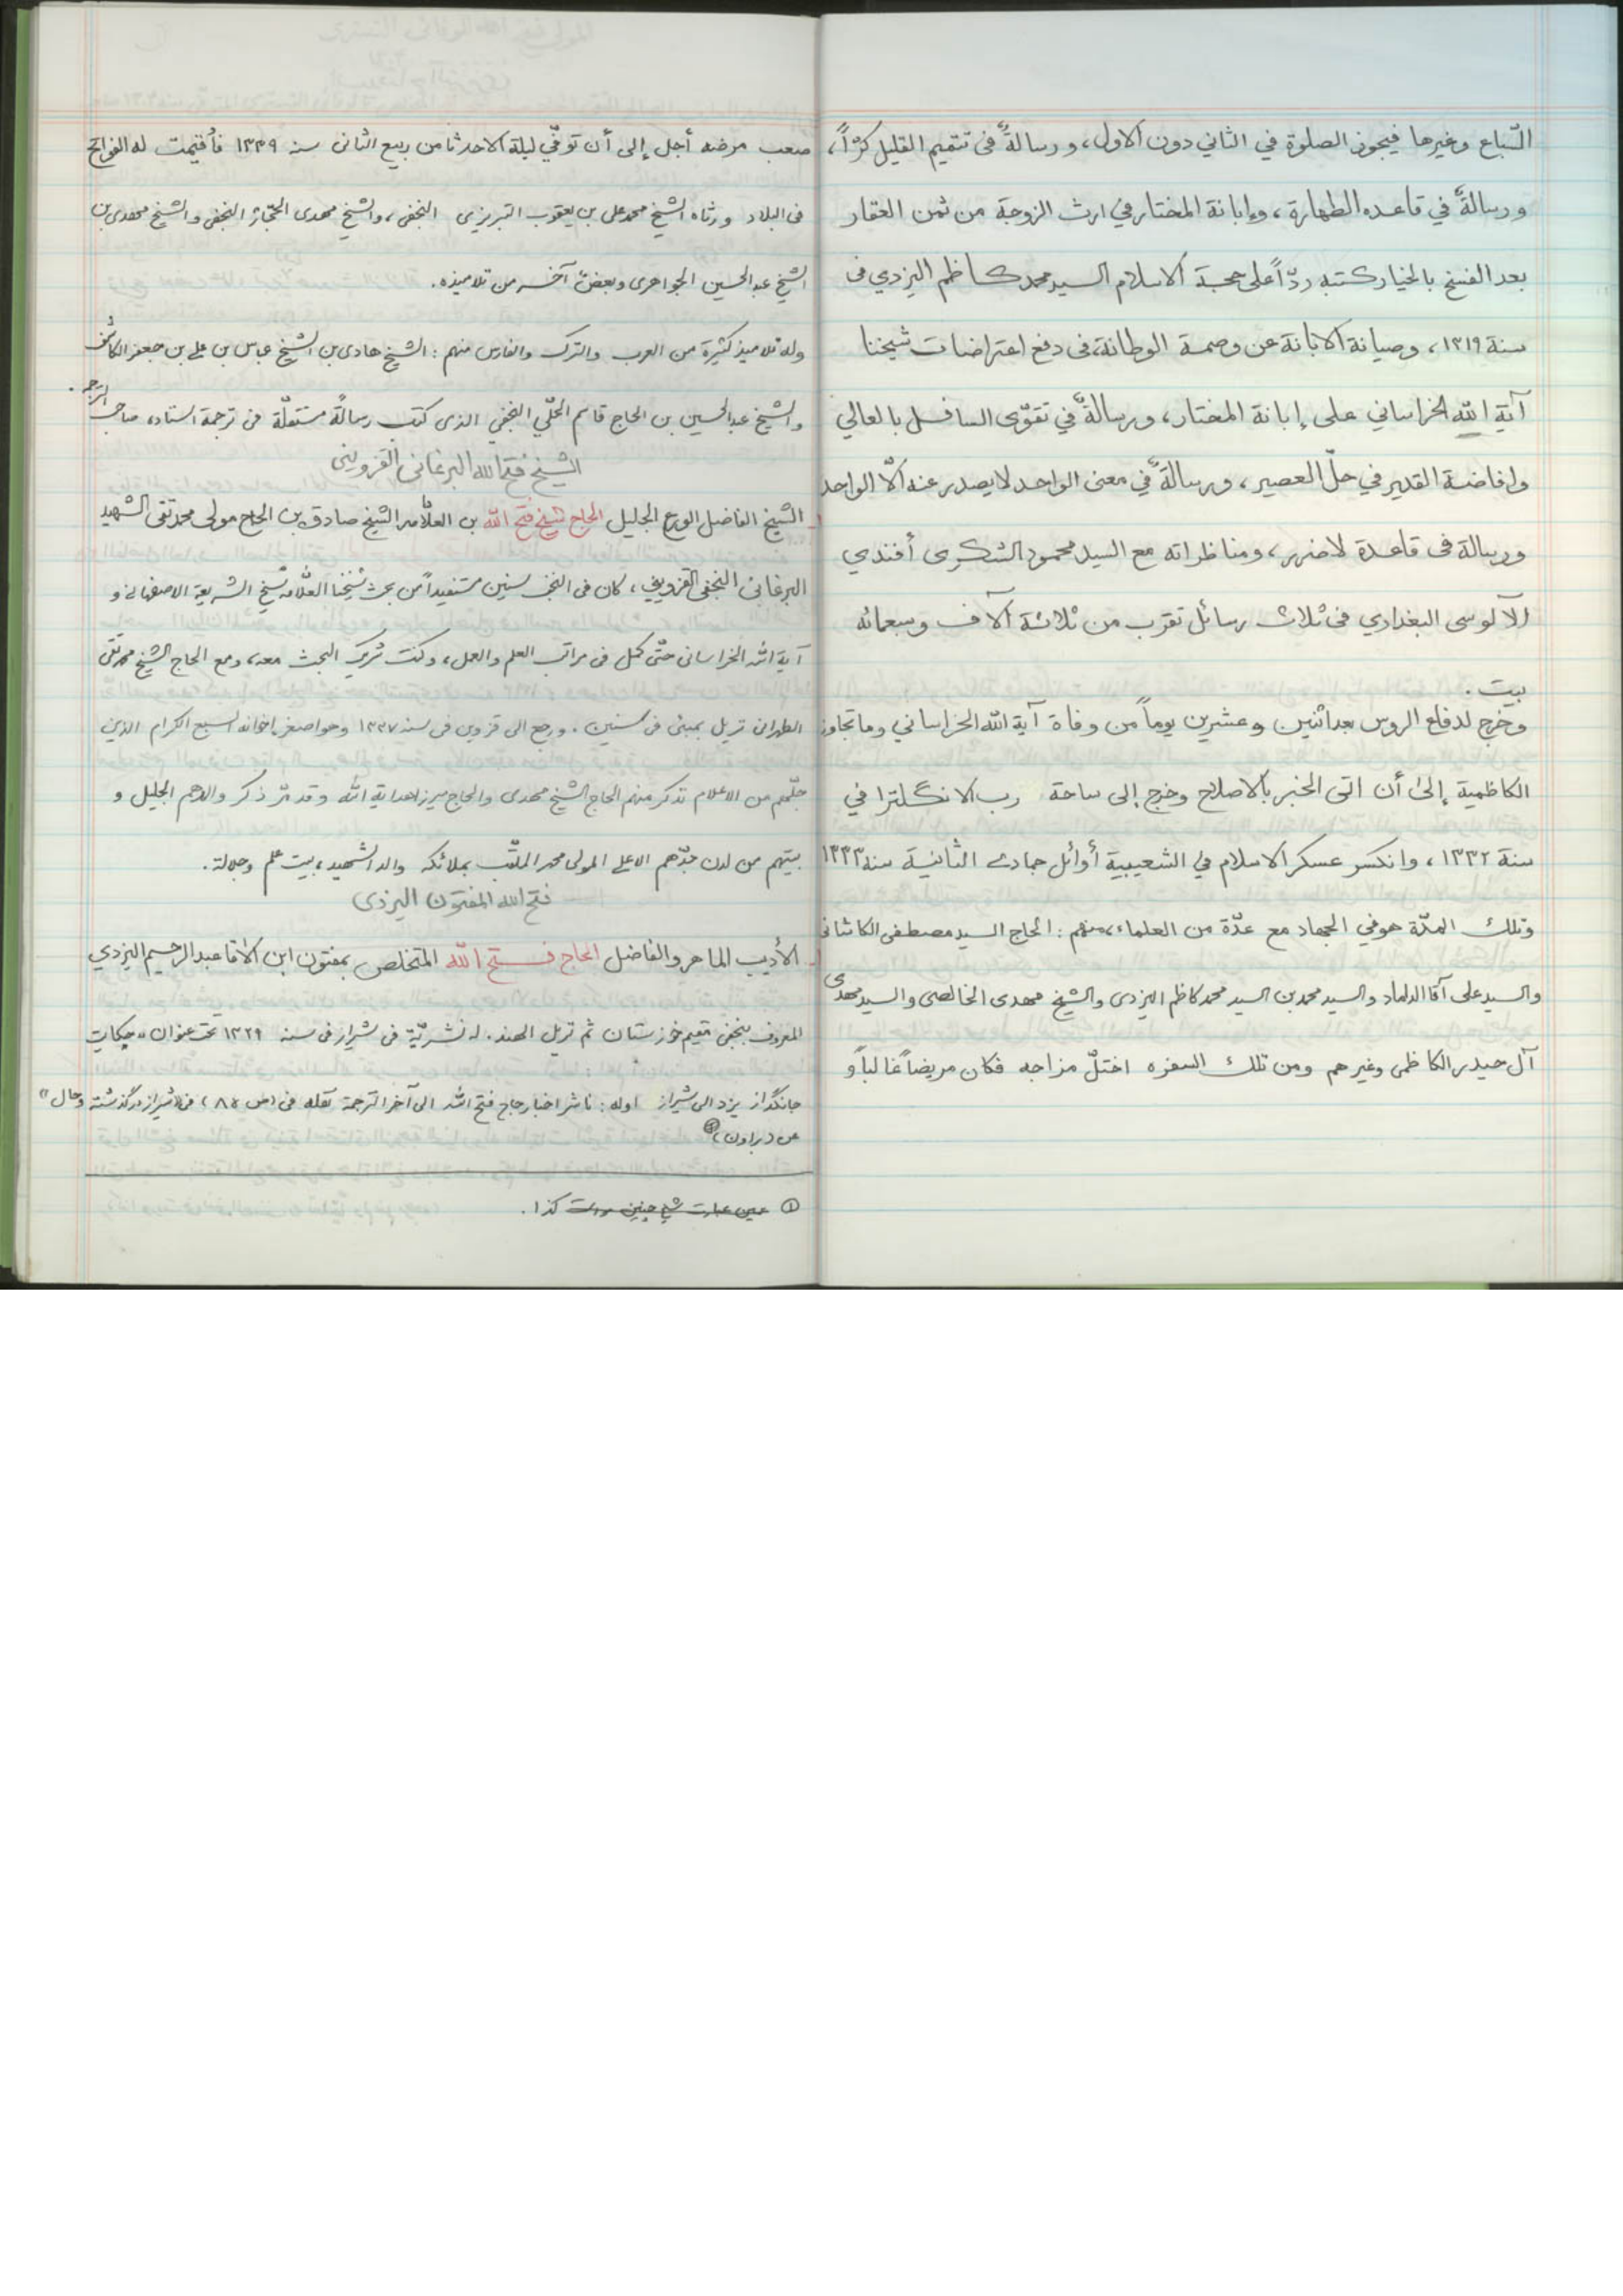 السّباع وغيرها فيجوز الصلوة في الثاني دون الاول، ورسالةٌ فى تتميم القليل كرّاً،
ورسالةٌ في قاعده الطهارة، وإبانة المختار في ارث الزوجة من ثمن العقار
بعد الفسخ بالخيار كتبه ردّاً على حجة الاسلام السيد محمد كاظم اليزدي فى
سنة ١٣١٩، وصيانة الابانة عن وصمة الوطانة، فى دفع اعتراضات شيخنا
آية الله الخراساني على إبانة المختار، ورسالةٌ في تقوّى السافل بالعالي
وافاضة القدير في حلّ العصير، ورسالةٌ في معنى الواحد لا يصدر عنه الّا الواحد
ورسالة فى قاعدة لاضرر، ومناظراته مع السيد محمود الشكرى أفندي
الآلوسى البغدادي فى ثلاث رسائل تقرب من ثلاثة آلاف وسبعمائه
بيت.
وخرج لدفاع الروس بعد اثنين وعشرين يوماً من وفاة آية الله الخراساني وما تجاوز
الكاظمية إلى أن اتى الخبر بالاصلاح وخرج إلى ساحة رب الانگلترا في
سنة ١٣٣٢، وانكسر عسكر الاسلام في الشعيبية أوائل جمادى الثانية سنة ١٣٣٣
وتلك المدّة هو في الجهاد مع عدّة من العلماء، منهم: الحاج السيد مصطفى الكاشانى
والسيد على آقا الداماد والسيد محمد بن السيد محمد كاظم اليزدى والشيخ مهدى الخالصى والسيد مهدى
آل حيدر الكاظمى وغيرهم ومن تلك السفره اختلّ مزاجه فكان مريضاً غالباً و
صعب مرضه أجل إلى أن توفّي ليلة الاحد ثامن ربيع الثانى سنه ١٣٣٩ فأُقيمت له الفواتح
فى البلاد ورثاه الشيخ محمد على بن يعقوب التبريزى النجفى، والشيخ مهدى الحجّار النجفى والشيخ مهدى بن
الشيخ عبد الحسين الجواهرى وبعضٌ آخر من تلاميذه.
وله تلاميذ كثيرة من العرب والترك والفارس منهم: الشيخ هادى بن الشيخ عباس بن على بن جعفر الكاشف
والشيخ عبد الحسين بن الحاج قاسم الحلّي النجفي الذى كتب رسالةً مستقلّة فى ترجمة استاده صاحب الترجمه.
الشيخ فتح الله البرغانى القزوينى
الشيخ الفاضل الورع الجليل الحاج شيخ فتح الله بن العلّامه الشيخ صادق بن الحاج مولى محمد تقى الشهيد
البرغانى النجفى القزويني، كان فى النجف سنين مستفيداً من بحث شيخنا العلّامه شيخ الشريعة الاصفهانى و
آية الله الخراسانى حتّى كمل فى مراتب العلم والعمل، وكنت شريك البحث معه، ومع الحاج الشيخ محمد تقى
الطهرانى نزيل بمبئى فى سنين. ورجع الى قزوين فى سنه ١٣٣٧ وهو اصغر اخوانه السبع الكرام الذين
جلّهم من الاعلام نذكر منهم الحاج الشيخ مهدى والحاج ميرزا هداية الله وقد مرّ ذكر والدهم الجليل و
بيتهم من لدن جدّهم الاعلى المولى محمد الملقّب بملائكه والد الشهيد، بيت علم وجلالة.
فتح الله المفتون اليزدى
الأديب الماهر والفاضل الحاج فتح الله المتخلص بمفتون ابن الآقا عبد الرحيم اليزدي
المعروف بنجفى مقيم خوزستان ثم نزيل الهند. له نشريّة فى شيراز فى سنه ١٣٢٩ تحت عنوان «حكايت
جانگداز يزد الى شيراز اوله: ناشر اخبار حاج فتح الله الى آخر الترجمة نقله فى (ص ٨٥) فى «شيراز در گذشته وحال»
عن (براون)①
① عين عبارت شيخ چنين است كذا.